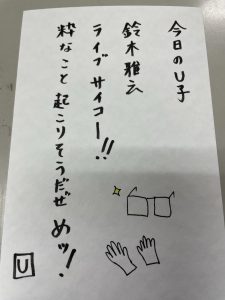 今日のU子
鈴木雅云
ライブ サイコー!!
粋なこと 起こりそうだぜ めッ!
U